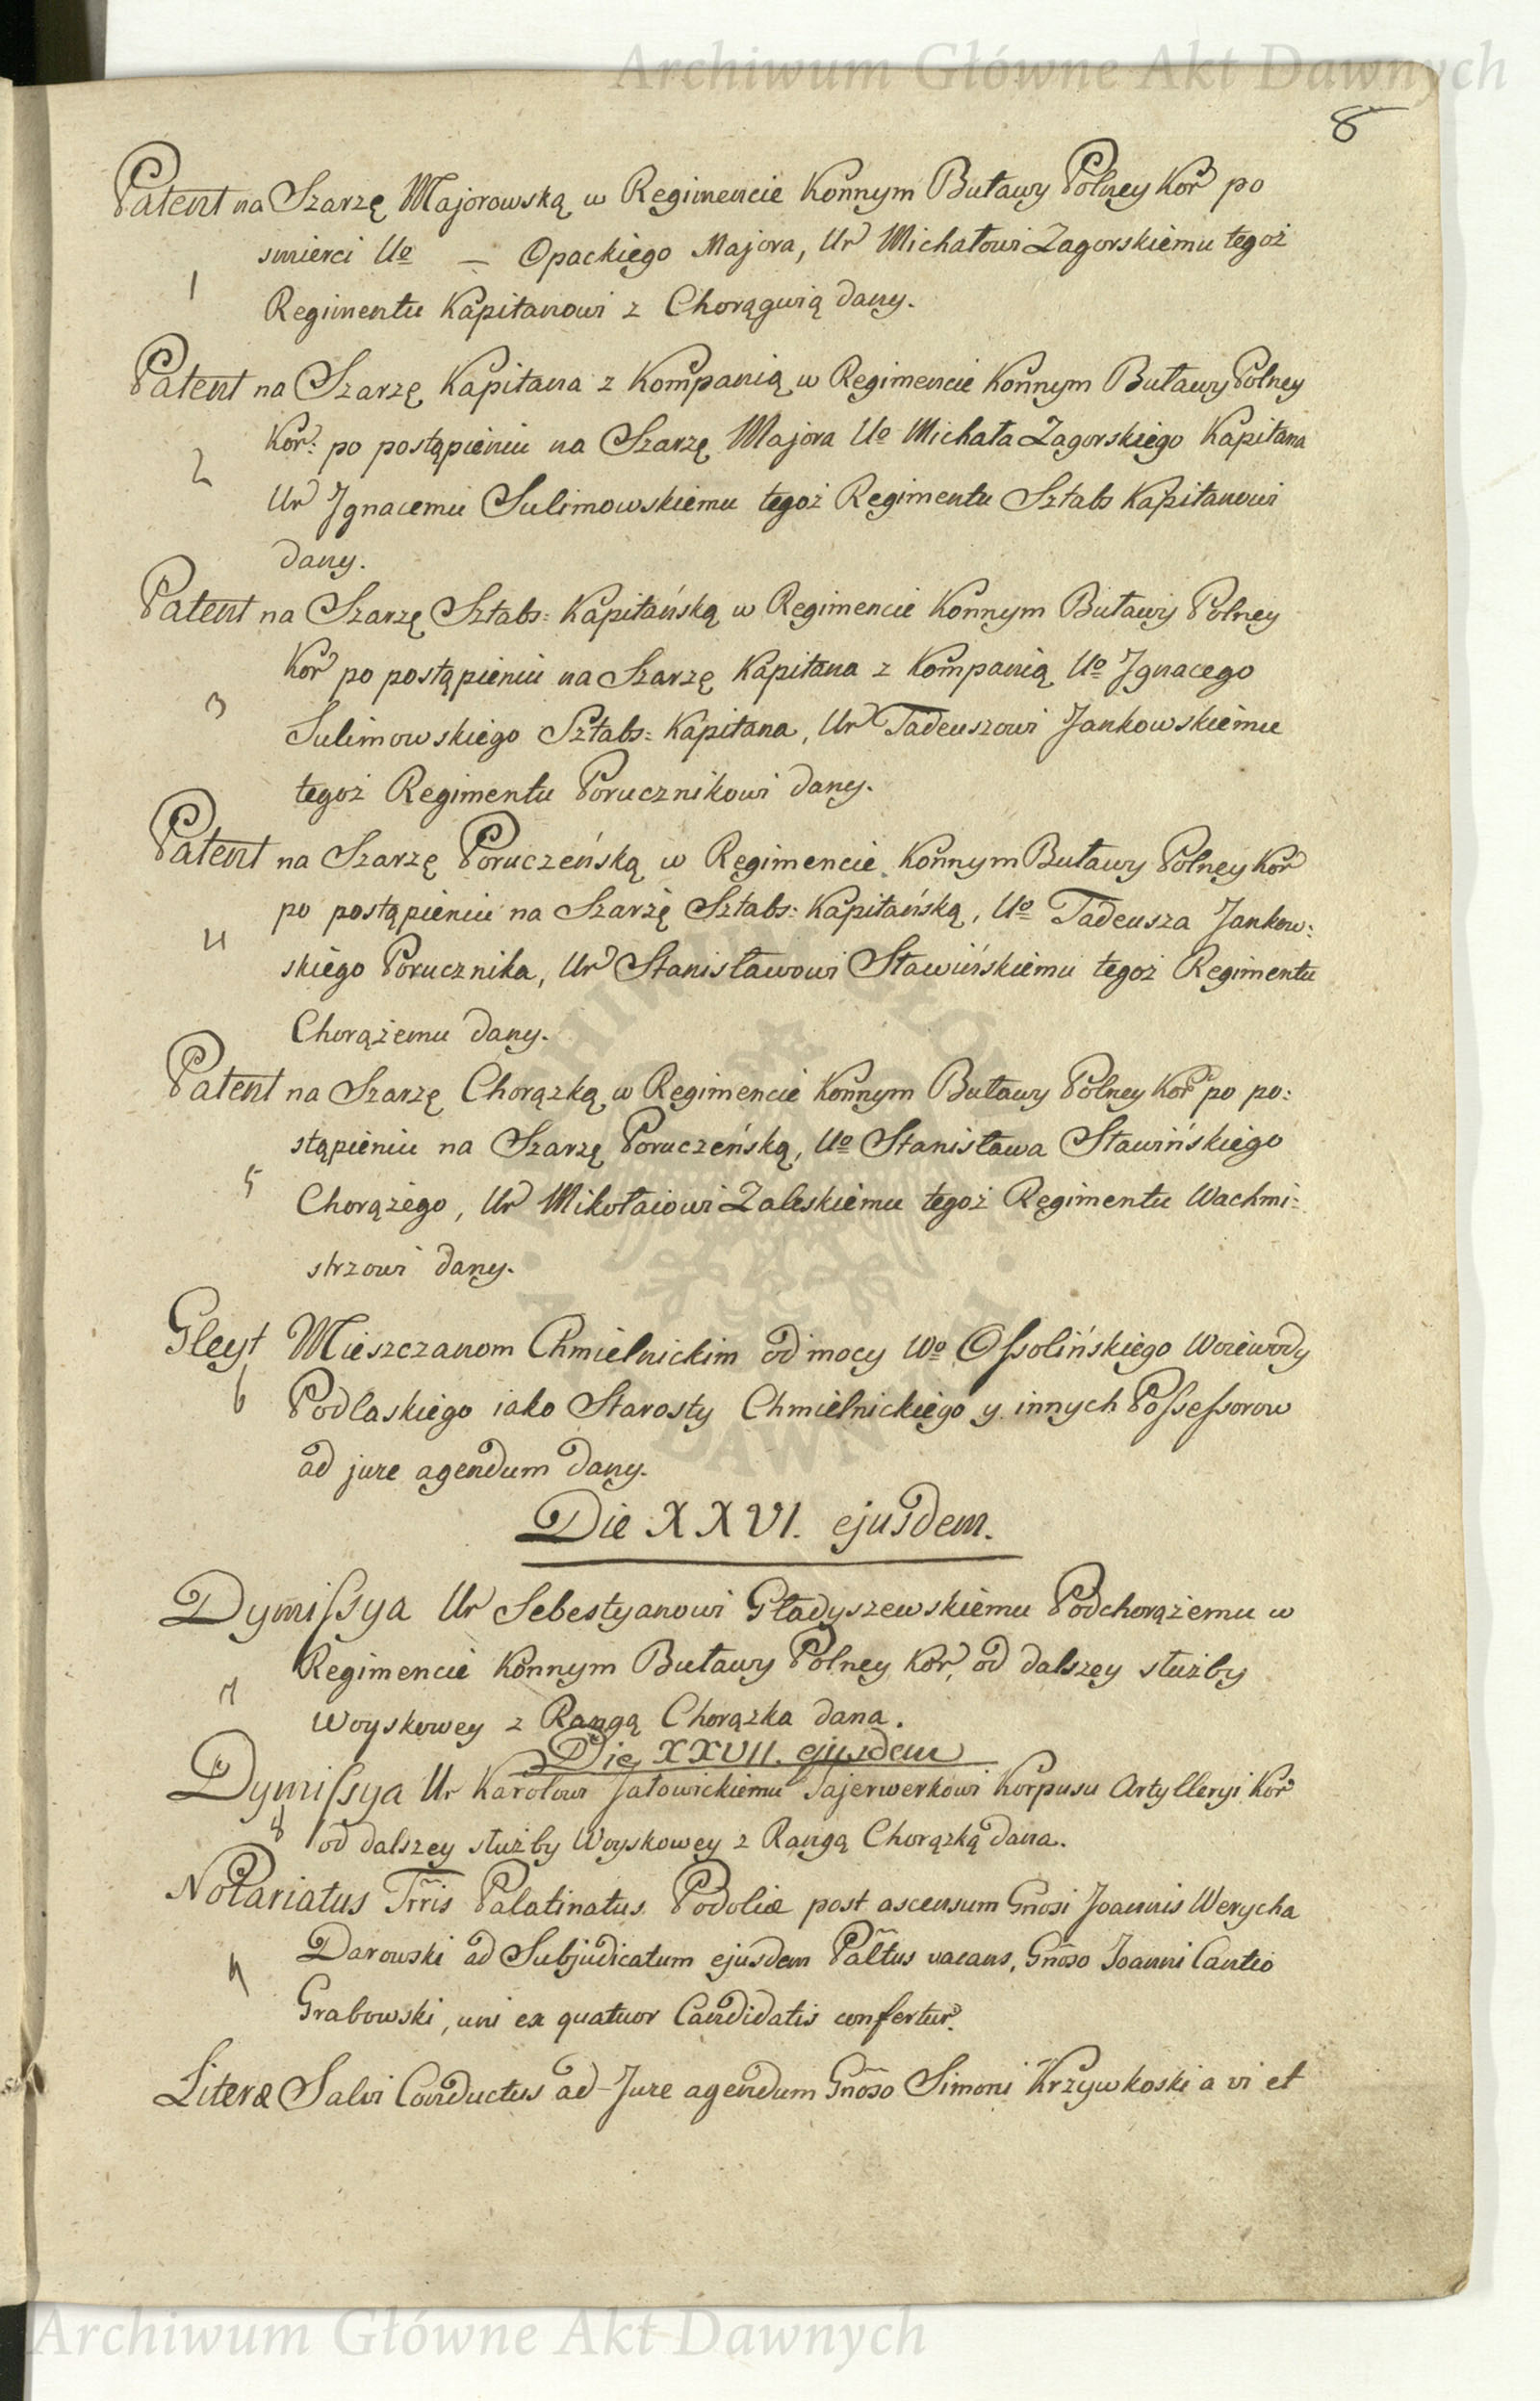 Archiwum Główne Akt Dawnych
8
Patent na Szarzę Majorowską w Regimencie Konnym Buławy Polney Kor po
smierci Uo — Opackiego Majora, Ur Michałowi Zagorskiemu tegoż
1
Regimentu Kapitanowi z Chorągwią dany.
Patent na Szarzę Kapitana z Kompanią w Regimencie Konnym Buławy Polney
Kor: po postąpieniu na Szarzę Majora Uo Michała Zagorskiego Kapitana
2
Ur Jgnacemu Sulimowskiemu tegoż Regimentu Sztabs Kapitanowi
dany.
Patent na Szarzę Sztabs: Kapitańską w Regimencie Konnym Buławy Polney
Kor po postąpieniu na Szarzę Kapitana z Kompanią Uo Jgnacego
3
Sulimowskiego Sztabs: Kapitana, Ur Tadeuszowi Jankowskiemu
tegoż Regimentu Porucznikowi dany.
Patent na Szarzę Poruczeńską w Regimencie Konnym Buławy Polney Kor
po postąpieniu na Szarzę Sztabs: Kapitańską, Uo Tadeusza Jankow:
4
skiego Porucznika, Ur Stanisławowi Sławińskiemu tegoż Regimentu
Chorążemu dany.
Patent na Szarzę Chorązką w Regimencie Konnym Buławy Polney Kor po po:
stąpieniu na Szarzę Poruczeńską, Uo Stanisława Sławińskiego
5
Chorążego, Ur Mikołaiowi Zaleskiemu tegoż Regimentu Wachmi:
strzowi dany.
Gleyt Mieszczanom Chmielnickim od mocy Wo Ossolińskiego Woiewody
6
Podlaskiego iako Starosty Chmielnickiego y innych Possessorow
ad jure agendum dany.
Die XXVI. ejusdem.
Dymissya Ur Sebestyanowi Gładyszewskiemu Podchorążemu w
Regimencie Konnym Buławy Polney Kor, od dalszey służby
7
Woyskowey z Rangą Chorązka dana.
Die XXVII. ejusdem
Dymissya Ur Karolowi Jałowickiemu Fajerwerkowi Korpusu Artylleryi Kor
8
od dalszey służby Woyskowey z Rangą Chorązką dana.
Notariatus Trris Palatinatus Podoliæ post ascensum Gnosi Joannis Werycha
Darowski ad Subjudicatum ejusdem Paltus vacans, Gnoso Joanni Cantio
9
Grabowski, uni ex quatuor Candidatis confertur.
Literæ Salvi Conductus ad Jure agendum Gnoso Simoni Krzywkoski a vi et
Archiwum Główne Akt Dawnych